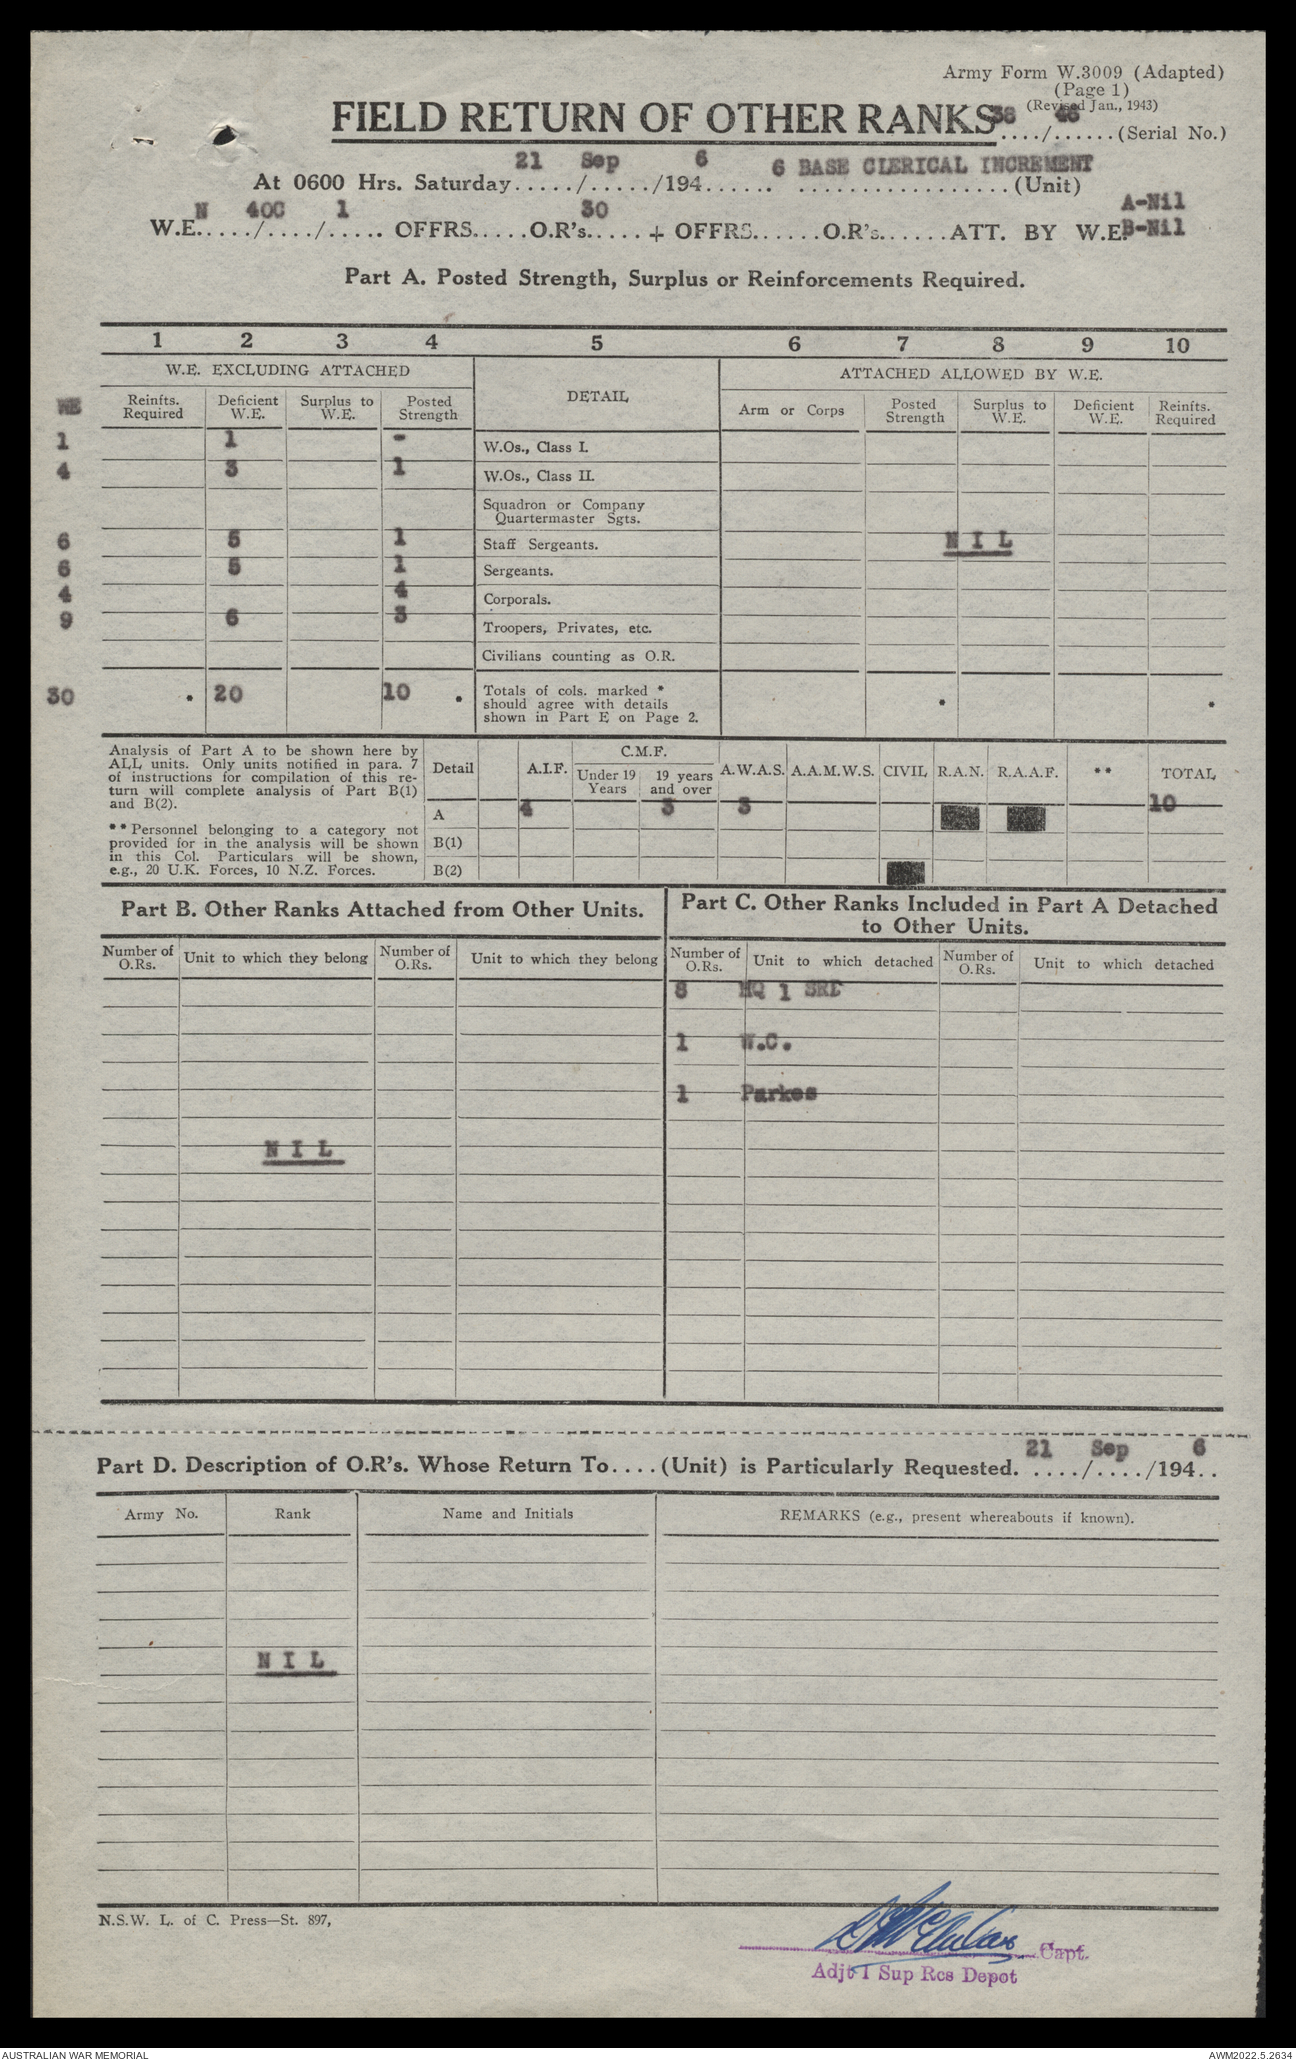 Army Form W.3009 (Adapted)
(Page 1)
(Revised Jan., 1943)
FIELD RETURN OF OTHER RANKS 38 46
..../......(Serial No.)
21 Sep 6 6 BASE CLERICAL INCREMENT
At 0600 Hrs. Saturday...../...../194...... ..................(Unit)
N 40C 1 30 A-Nil
W.E...../..../..... OFFRS.....O.R's.....+ OFFRS......O.R's......ATT. BY W.E. B-Nil
Part A. Posted Strength, Surplus or Reinforcements Required.
1 2 3 4 5 6 7 8 9 10
W.E. EXCLUDING ATTACHED DETAIL ATTACHED ALLOWED BY W.E.
WE Reinfts. Required Deficient W.E. Surplus to W.E. Posted Strength Arm or Corps Posted Strength Surplus to W.E. Deficient W.E. Reinfts. Required
1 1 - W.Os., Class I.
4 3 1 W.Os., Class II.
Squadron or Company
Quartermaster Sgts.
6 5 1 Staff Sergeants. NIL
6 5 1 Sergeants.
4 4 Corporals.
9 6 3 Troopers, Privates, etc.
Civilians counting as O.R.
30 * 20 10 * Totals of cols. marked * * *
should agree with details
shown in Part E on Page 2.
Analysis of Part A to be shown here by
ALL units. Only units notified in para. 7
of instructions for compilation of this re-
turn will complete analysis of Part B(1)
and B(2).
**Personnel belonging to a category not
provided for in the analysis will be shown
in this Col. Particulars will be shown,
e.g., 20 U.K. Forces, 10 N.Z. Forces.
Detail A.I.F. C.M.F. Under 19 Years 19 years and over A.W.A.S. A.A.M.W.S. CIVIL R.A.N. R.A.A.F. ** TOTAL
A 4 3 3 10
B(1)
B(2)
Part B. Other Ranks Attached from Other Units.
Number of O.Rs. Unit to which they belong Number of O.Rs. Unit to which they belong
NIL
Part C. Other Ranks Included in Part A Detached
to Other Units.
Number of O.Rs. Unit to which detached Number of O.Rs. Unit to which detached
8 HQ 1 SRD
1 W.C.
1 Parkes
21 Sep 6
Part D. Description of O.R's. Whose Return To....(Unit) is Particularly Requested. ..../..../194..
Army No. Rank Name and Initials REMARKS (e.g., present whereabouts if known).
NIL
N.S.W. L. of C. Press—St. 897,
Capt.
Adjt 1 Sup Rcs Depot
AUSTRALIAN WAR MEMORIAL AWM2022.5.2634